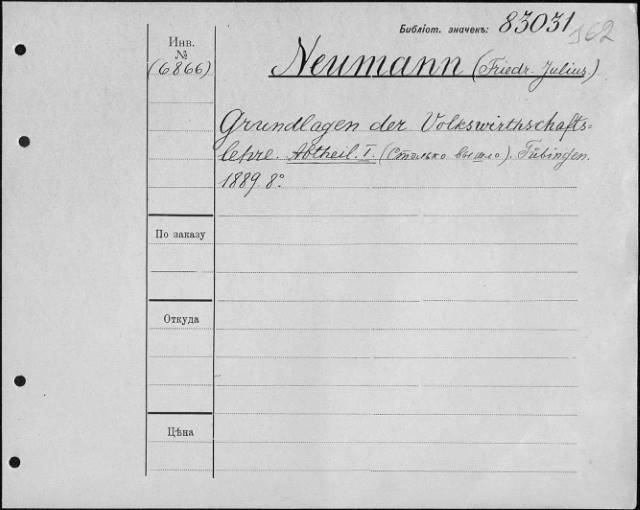 Библіот. значекъ: 83031
162
Инв.
№
(6866)
Neumann (Friedr. Julius)
Grundlagen der Volkswirthschafts=
lehre. Abtheil. I. (Столько вышло). Tübingen.
1889. 8°.
По заказу
Откуда
Цѣна